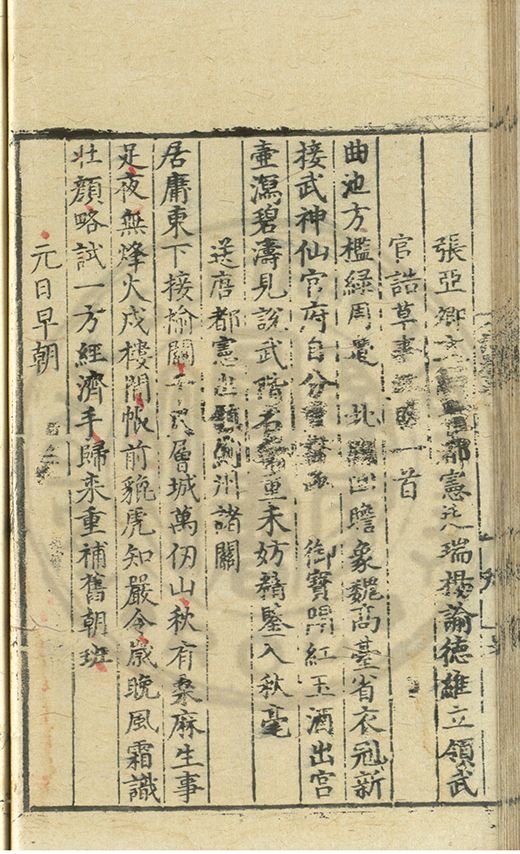 張亞卿文都憲元瑞楊諭德雄立領武
官誥草事一首
曲池方檻綠周遭北瞻象魏高臺省衣冠新
接武神仙官府自分御寶紅玉酒出宮
壷瀉碧濤見說武階名重未妨精鑒入秋毫
送唐都憲薊州諸關
居庸東下接榆關層城萬仞山秋有桑麻生事
足夜無烽火戍樓閒帳前貔虎知嚴令歲晚風霜識
壯顏略試一方經濟手歸来重補舊朝班
元日早朝